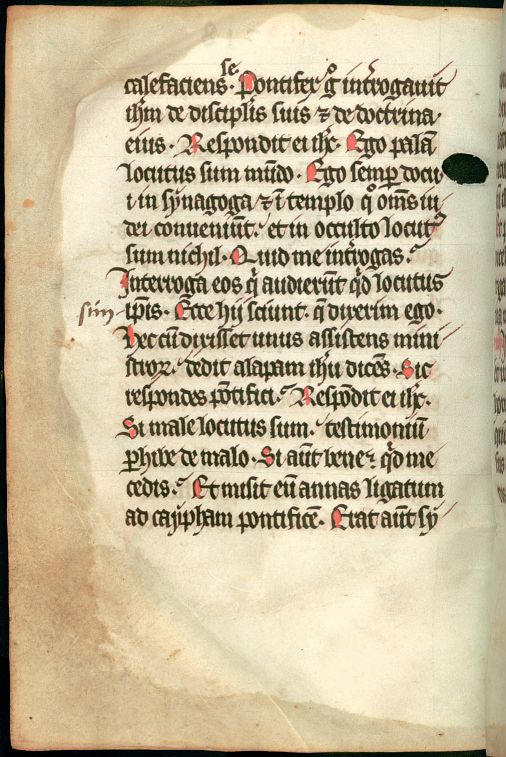 se
calefaciens. Pontifex gͦ int̾rogauit
ih̄m de discipl̄is suis ⁊ de doctrina
eius. Respondit ei ih̄c. Ego palā
locutus sum mūdo. Ego semꝑ docu
i in synagoga ⁊ ī templo qͦ om̄s iu
dei conueniūt. et in occulto locutꝰ
sum nichil. Quid me int̾rogas.
Interroga eos q̄ audierūt qd̄ locutus
sim ip̄is. Ecce hij sciunt. q̄ dixerim ego.
Hec cū dixisset unus assistens mini
stroꝝ. dedit alapam ih̄u dicēs. Sic
respondes pōtifici. Respōdit ei ih̄c.
Si male locutus sum. testimoniū
ꝑhibe de malo. Si aūt bene. qd̄ me
cedis. Et misit eū annas ligatum
ad cayipham pontificē. Erat aūt sy